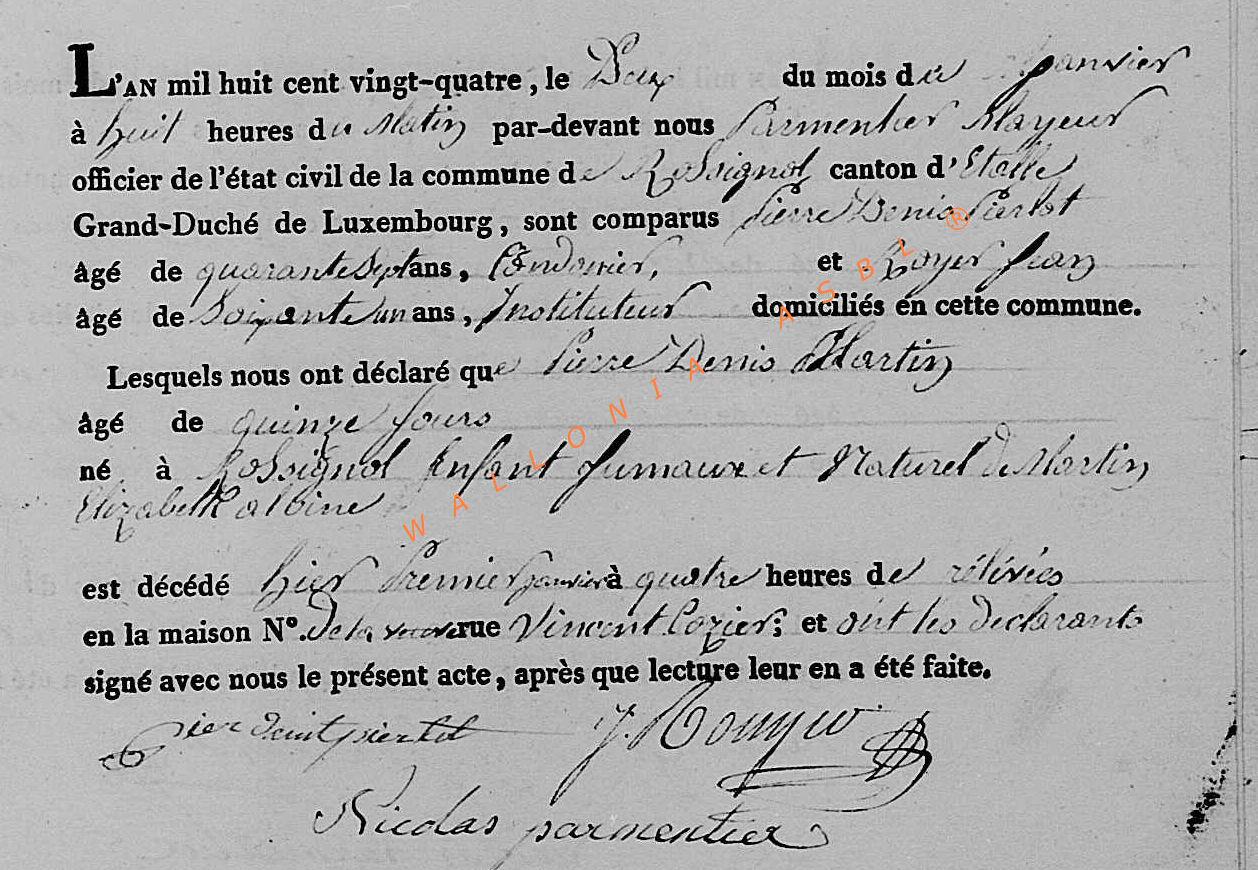 L'AN mil huit cent vingt-quatre, le Deux du mois de janvier
à huit heures du Matin par-devant nous Parmentier Mayeur
officier de l'état civil de la commune de Rossignol canton d'Etalle
Grand-Duché de Luxembourg, sont comparus Pierre Denis Pierlot
âgé de quarante Sept ans, et Royer Jean
âgé de Soixante un ans, Instituteur domiciliés en cette commune.
Lesquels nous ont déclaré que Pierre Denis Martin
âgé de quinze Jours
né à Rossignol Enfant Jumaux et Naturel de Martin
Elizabeth albine
est décédé hier Premier janvier à quatre heures de rélévées
en la maison N°. De la veuve rue Vincent Cozier; et ont les Declarants
signé avec nous le présent acte, après que lecture leur en a été faite.
pierlot J.
Nicolas parmentier
WALLONIA ASBL ®